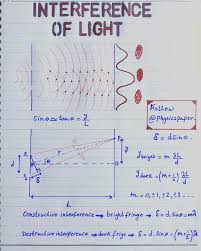 INTERFERENCE
OF LIGHT
Follow
@Physicspaper.
sinθ≃tanθ = y/L
δ = d sinθ.
y bright = m λL/d
y dark = (m+1/2) λL/d
m = 0, ±1, ±2, ±3 ...
d
S₁
S₂
δ
y
L
Constructive interference → bright fringe → δ = d.sinθ = mλ
Destructive interference → dark fringe → δ = d.sinθ = (m+1/2)λ